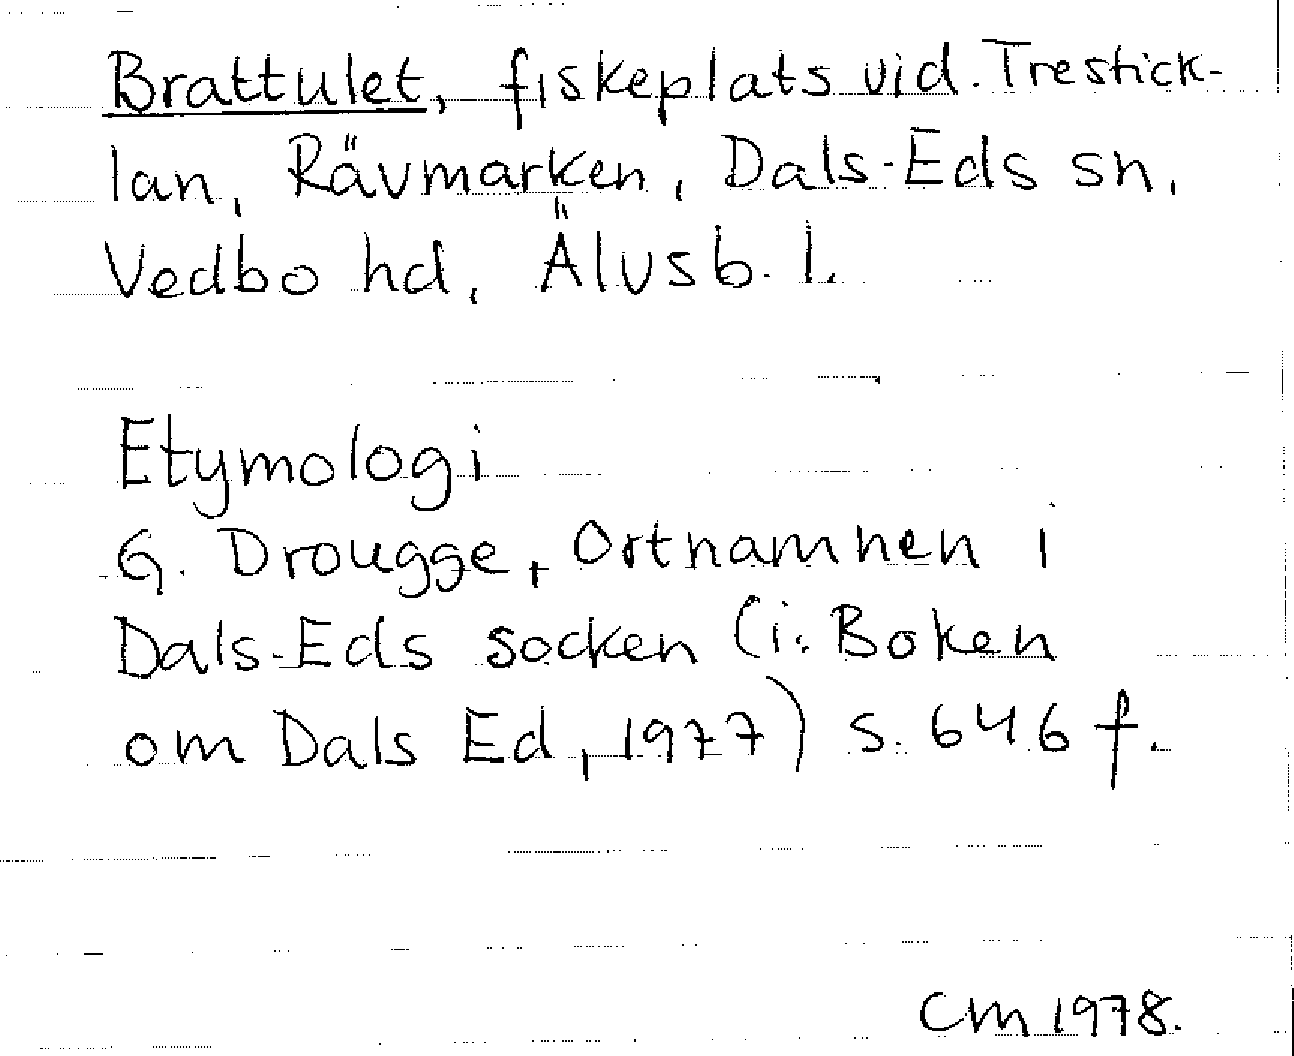 Brattulet, fiskeplats vid Trestick-
lan, Rävmarken, Dals-Eds sn,
Vedbo hd, Älvsb. l.
Etymologi
G. Drougge, Ortnamnen i
Dals-Eds socken (i: Boken
om Dals Ed, 1977) s. 646 f.
CM 1978.